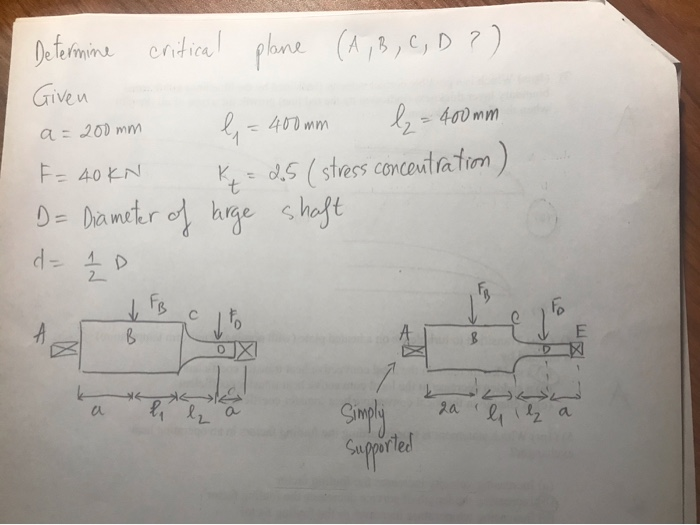 Determine critical plane (A, B, C, D ?)
Given
a = 200 mm l₁ = 400 mm l₂ = 400 mm
F = 40 KN K_t = 2.5 (stress concentration)
D = Diameter of large shaft
d = 1/2 D
A F_B B C F_D D
a l₁ l₂ a
A F_B B C F_D D E
2a l₁ l₂ a
Simply
supported